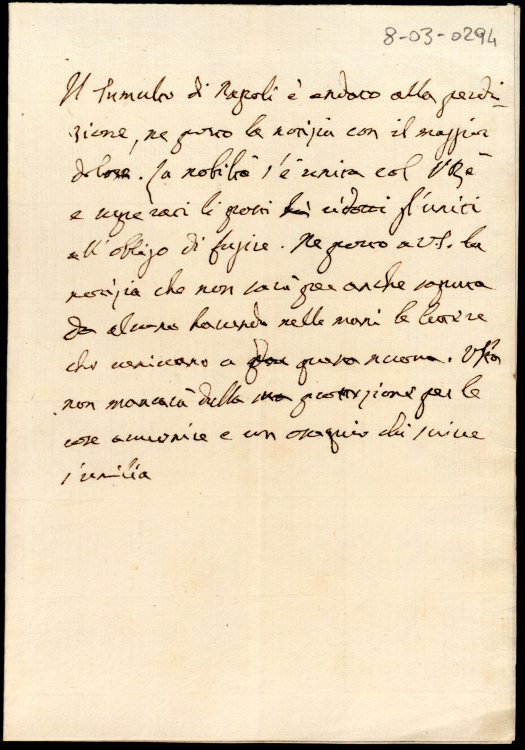 8-03-0294
Il Tumulto di Napoli è andato alla perdi-
zione, ne porto la notizia con il maggior
dolore. La nobiltà s'è unita col VRè
e superati li posti ridotti gl'uniti
all'obligo di fugire. Ne porto a VS. la
notizia che non sarà per anche saputa
da alcuno havendo nelle mani le lettere
che venivano a questa nuova. VSia
non mancarà della protezione per le
cose avvenire e con ossequio chi scrive
s'umilia